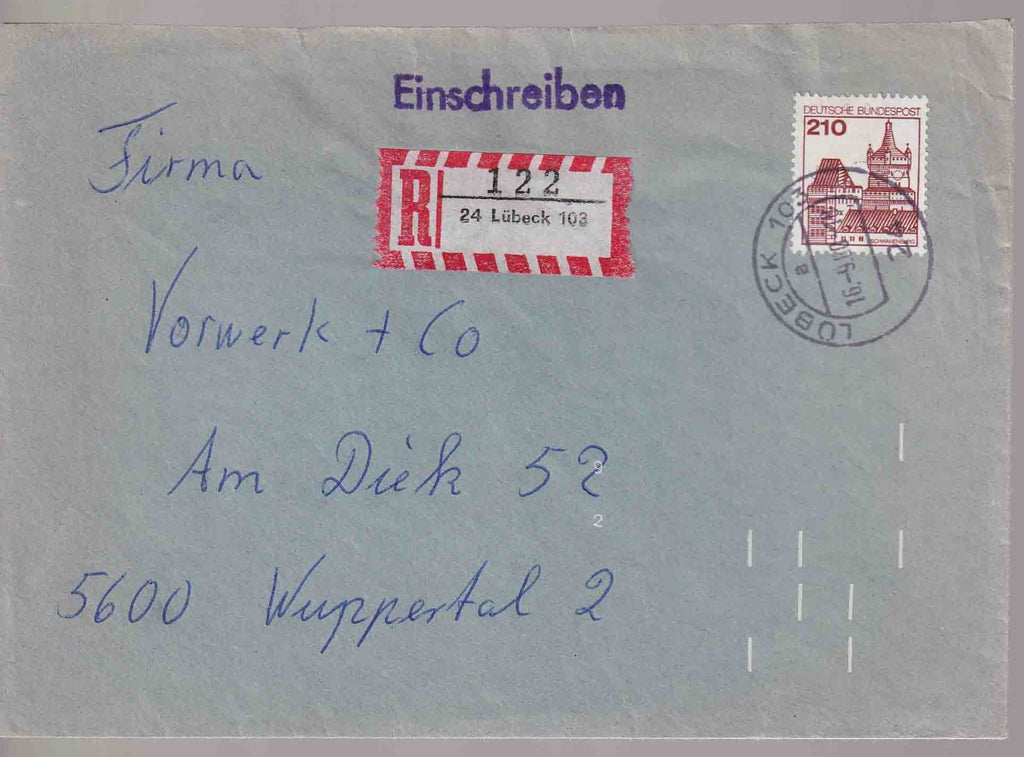 Einschreiben
DEUTSCHE BUNDESPOST
210
SCHWANENBURG
R 122
24 Lübeck 103
LÜBECK 103
a
Firma
Vorwerk + Co
Am Diek 52
5600 Wuppertal 2
2